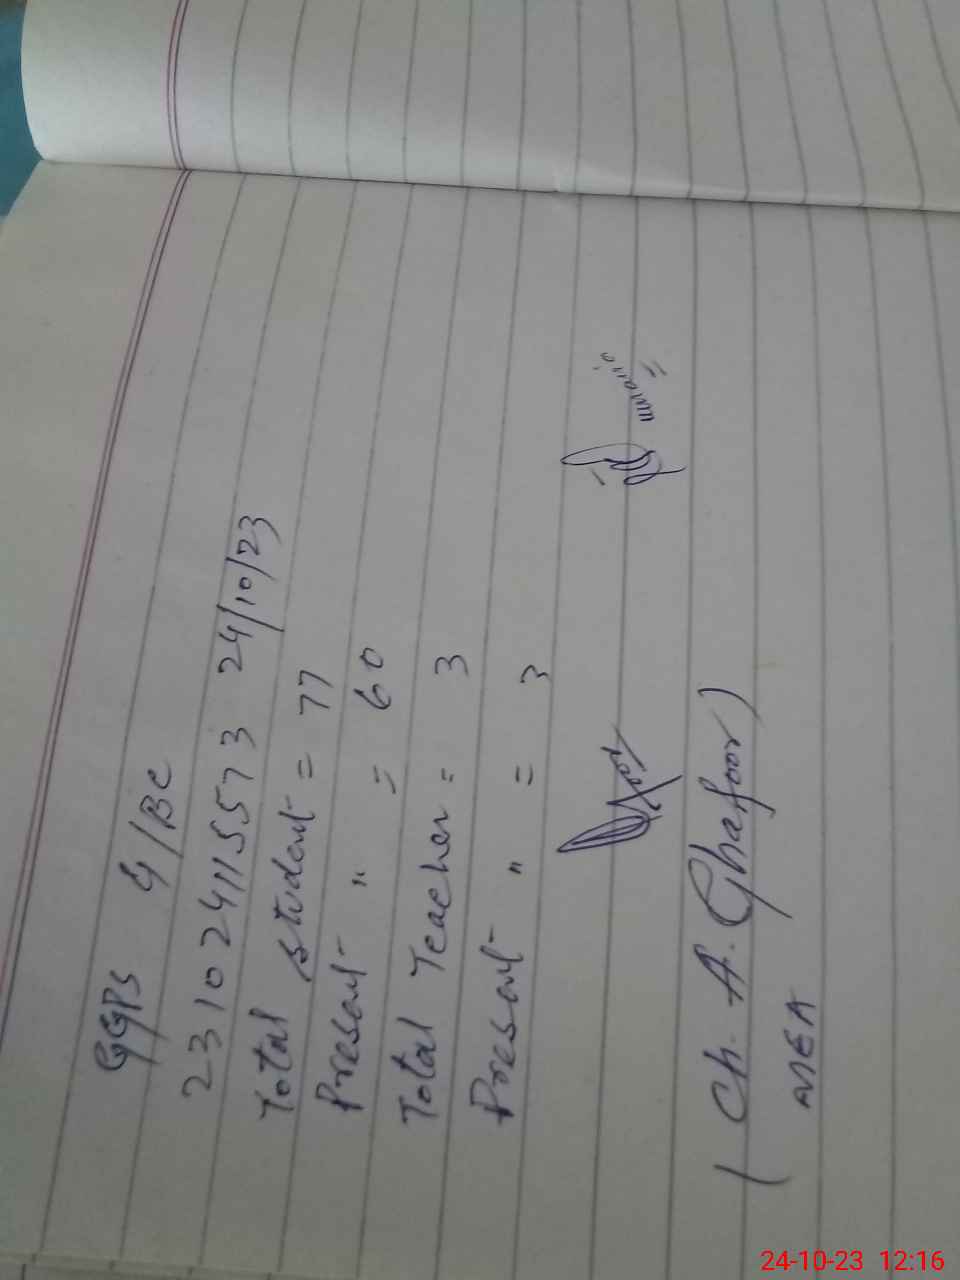 GGPS 4/BC
231024115573 24/10/23
Total student = 77
Present " = 60
Total Teacher = 3
Present " = 3
(Ch. A. Ghafoor)
MEA
24-10-23 12:16